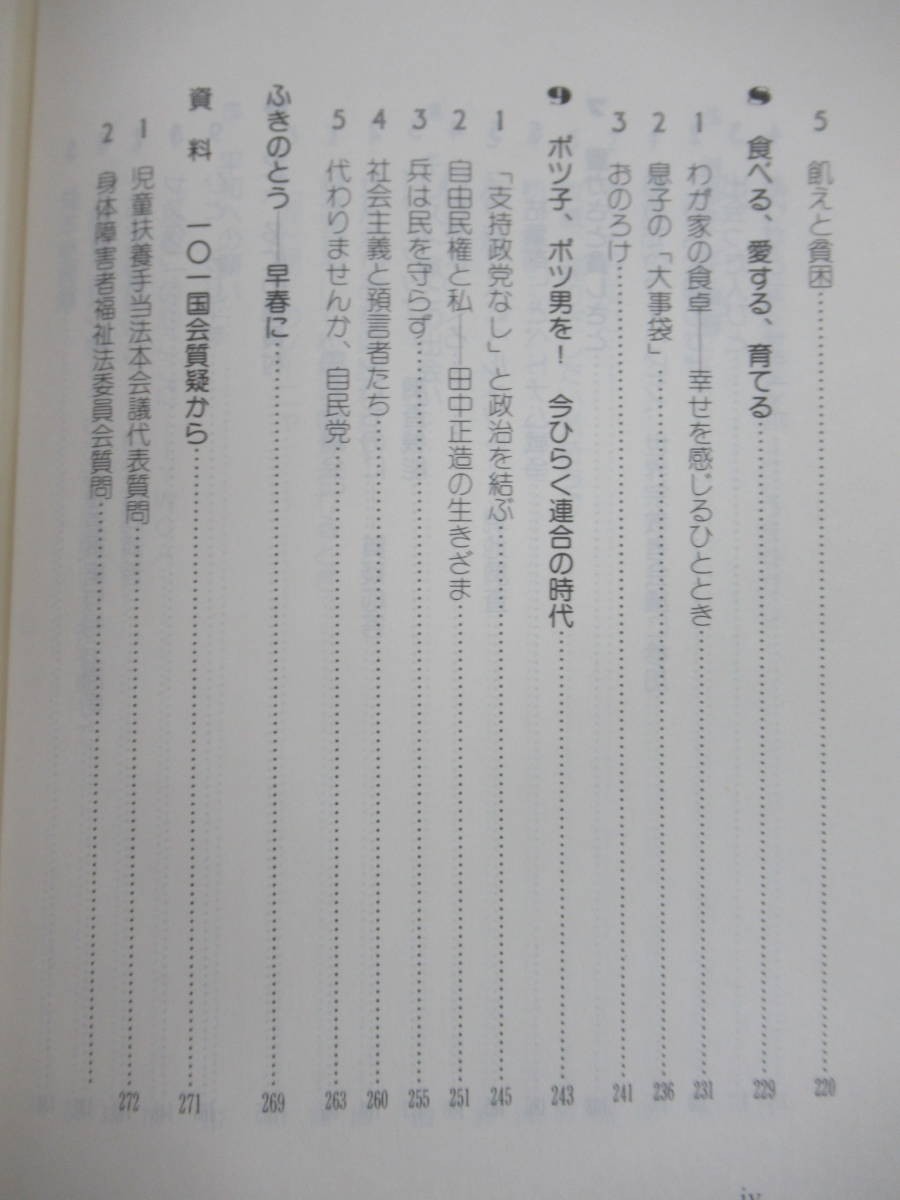 5 飢えと貧困……220
8 食べる、愛する、育てる……229
1 わが家の食卓――幸せを感じるひととき……231
2 息子の「大事袋」……236
3 おのろけ……241
9 ボツ子、ボツ男を! 今ひらく連合の時代……243
1 「支持政党なし」と政治を結ぶ……245
2 自由民権と私――田中正造の生きざま……251
3 兵は民を守らず……255
4 社会主義と預言者たち……260
5 代わりませんか、自民党……263
ふきのとう――早春に……269
資料 一〇一国会質疑から……271
1 児童扶養手当法本会議代表質問……272
2 身体障害者福祉法委員会質問……
iv